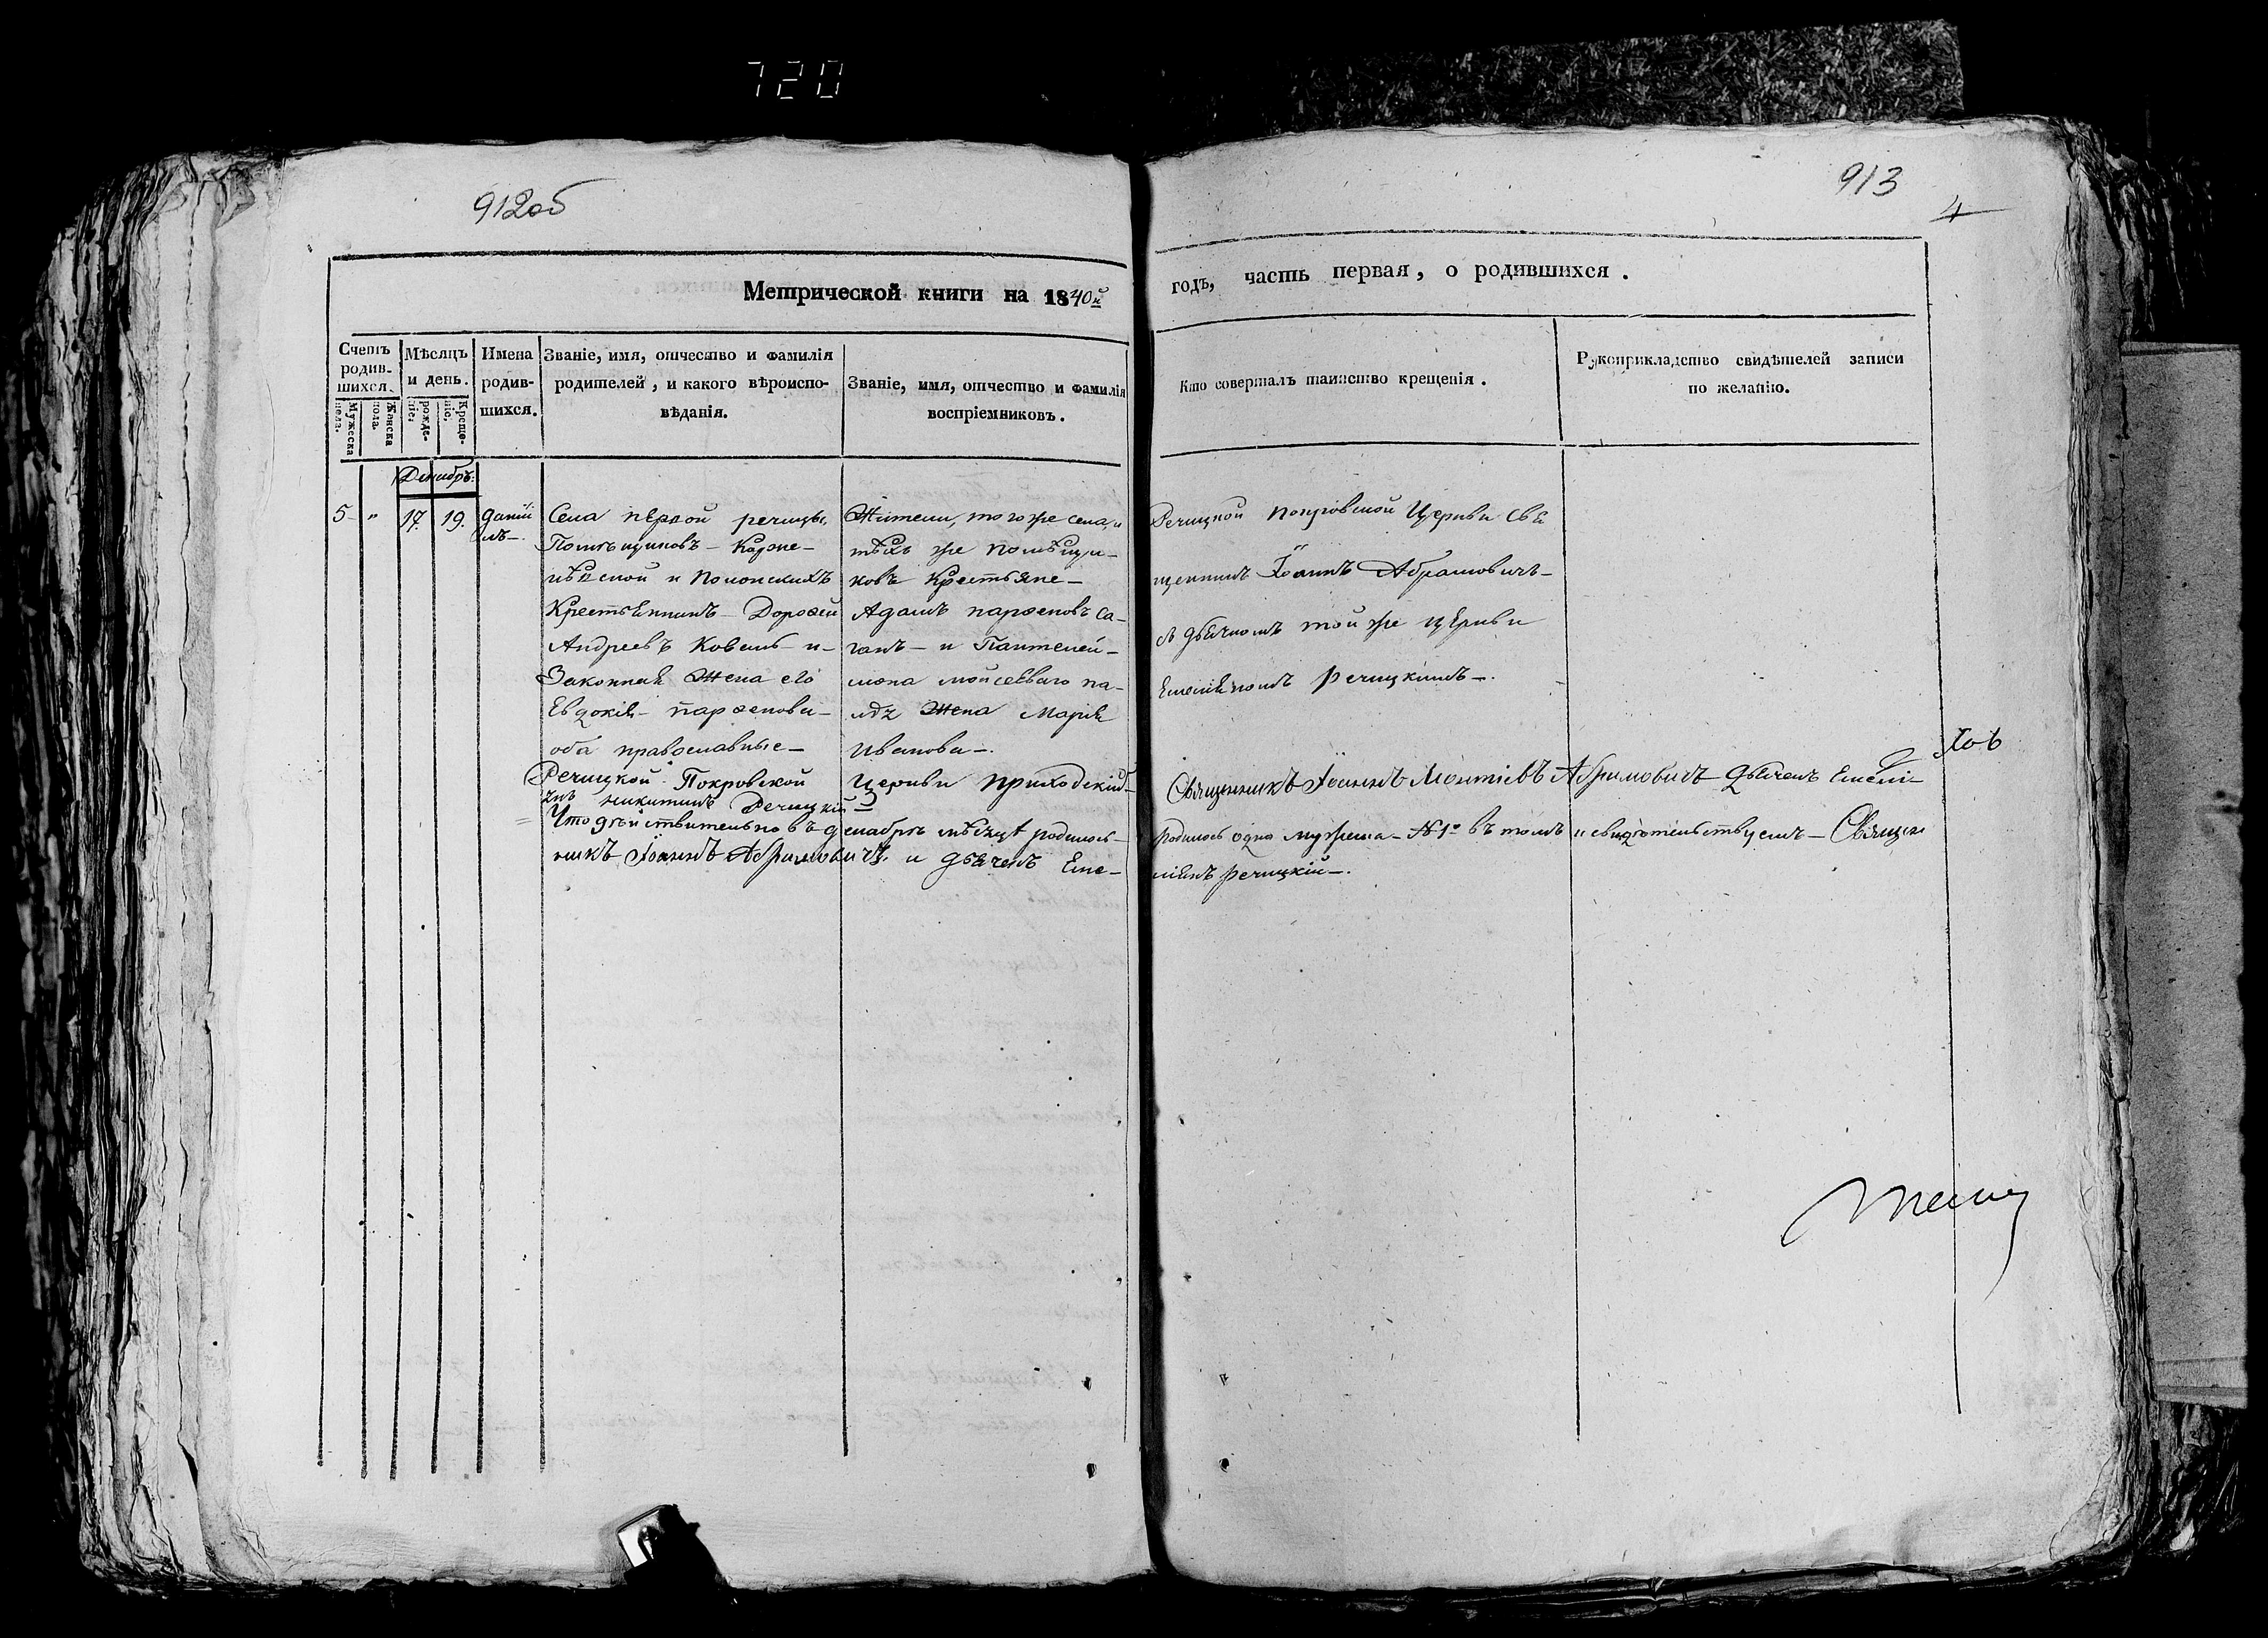 720
912об
913
4
Метрической книги на 1840й
годъ, часть первая, о родившихся.
Счетъ родив-шихся.
Мужеска пола.
Женска пола.
Мѣсяцъ и день.
рожде-нiе.
Креще-нiе.
Имена родив-шихся.
Званiе, имя, отчество и фамилiя родителей, и какого вѣроиспо-вѣданiя.
Званiе, имя, отчество и фамилiя воспрiемниковъ.
Кто совершалъ таинство крещенiя.
Рукоприкладство свидѣтелей записи по желанiю.
Декабрь.
5 " 17. 19.
Данiи
лъ
Села первой речицы,
Помѣщиковъ
и
Крестьянинъ Дорофей
Андреевъ Коваль и
Законная Жена его
Евдокiя парфенова
оба православные
Жители, того же села, и
тѣхъ же помѣщи-
ковъ Крестьяне
Адамъ парфеновъ са-
ганъ и Пантелей-
мона мойсееваго
Жена Марiя
Иванова
Речицкой покровской Церкви Свя
щенникъ Iоаннъ Абрамовичъ
съ дьячкомъ той же церкви
Емелiяномъ речицкимъ
Речицкой Покровской Церкви приходскiй
Священникъ Iоаннъ Абрамовичъ Дьячекъ Емелi-
никитинъ Речицкiй
Что дѣйствительно въ декабрѣ мѣсяцѣ родилось
родилось одно мужеска №1о въ томъ и свидѣтельствуемъ Священ
никъ Iоаннъ Абрамовичъ и дьячекъ Еме-
лiянъ речицкiй